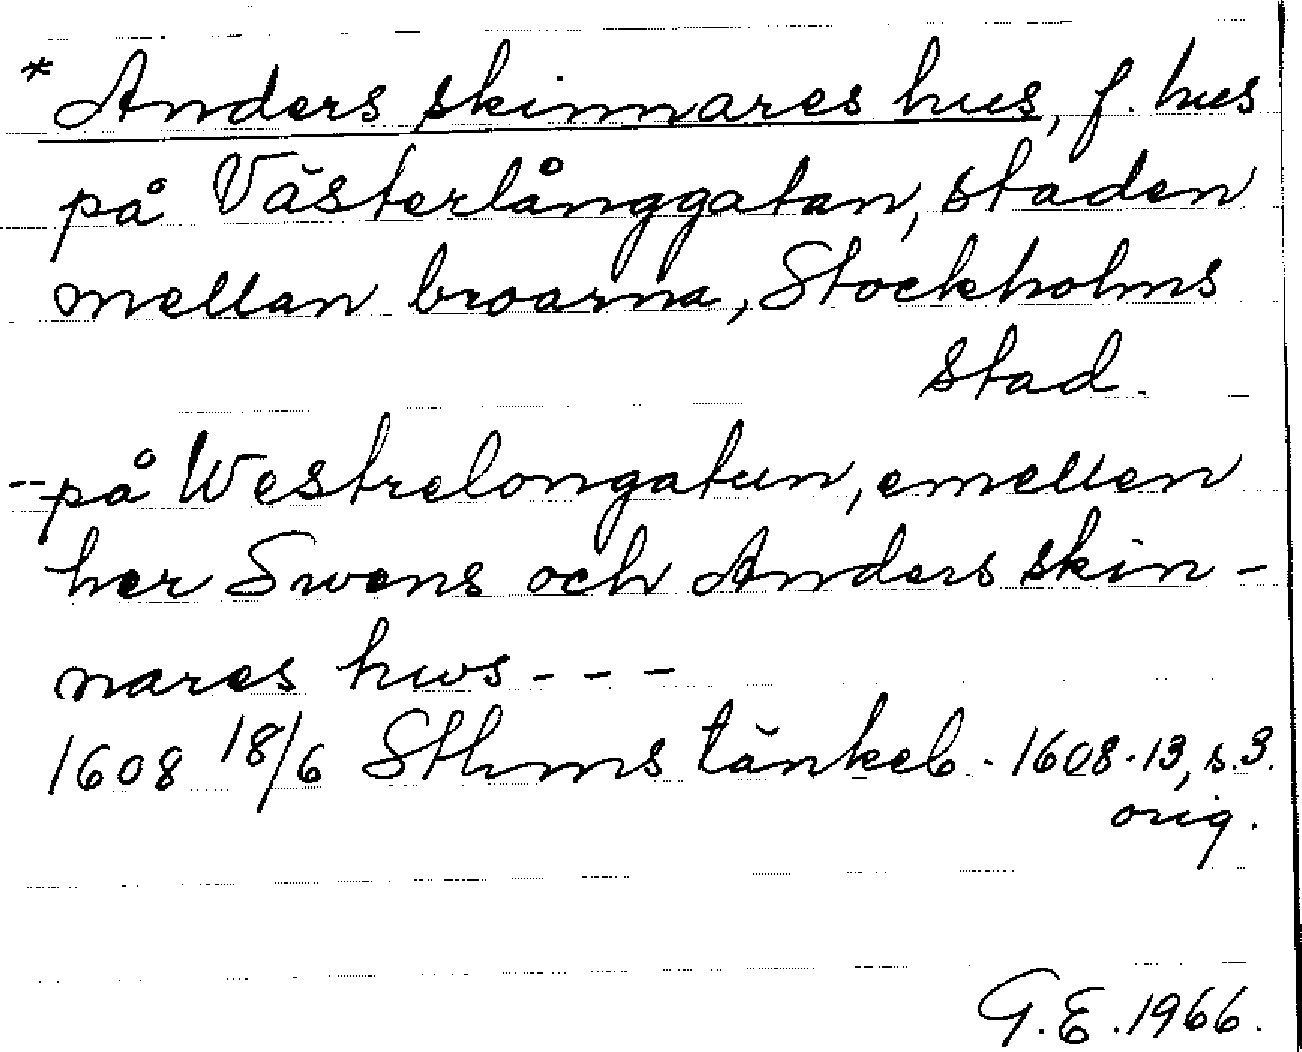 * Anders skinnares hus, f. hus
på Västerlånggatan, staden
mellan broarna, Stockholms
stad.
-- på Westrelongatun, emellen
her Swens och Anders skin-
nares hws - - -
1608 18/6 Sthms tänkeb. 1608-13, s. 3.
orig.
G. E. 1966.